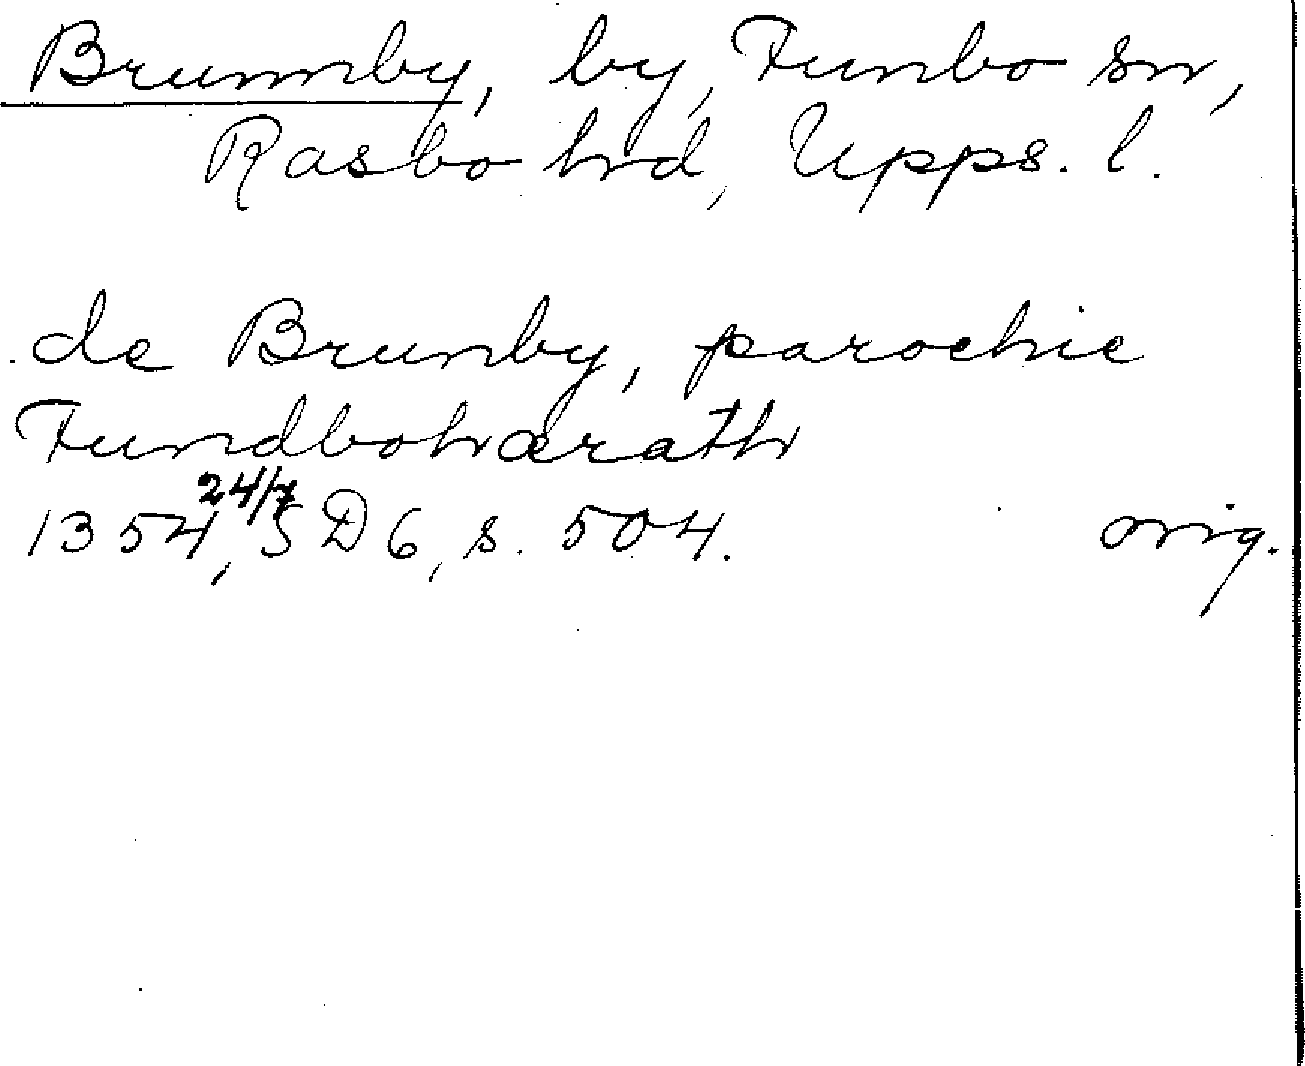 Brunnby, by, Funbo sn,
Rasbo hrd, Upps. l.
de Brunby, parochie
Fundbohærath
24/7
1354, SD 6, s. 504. orig.